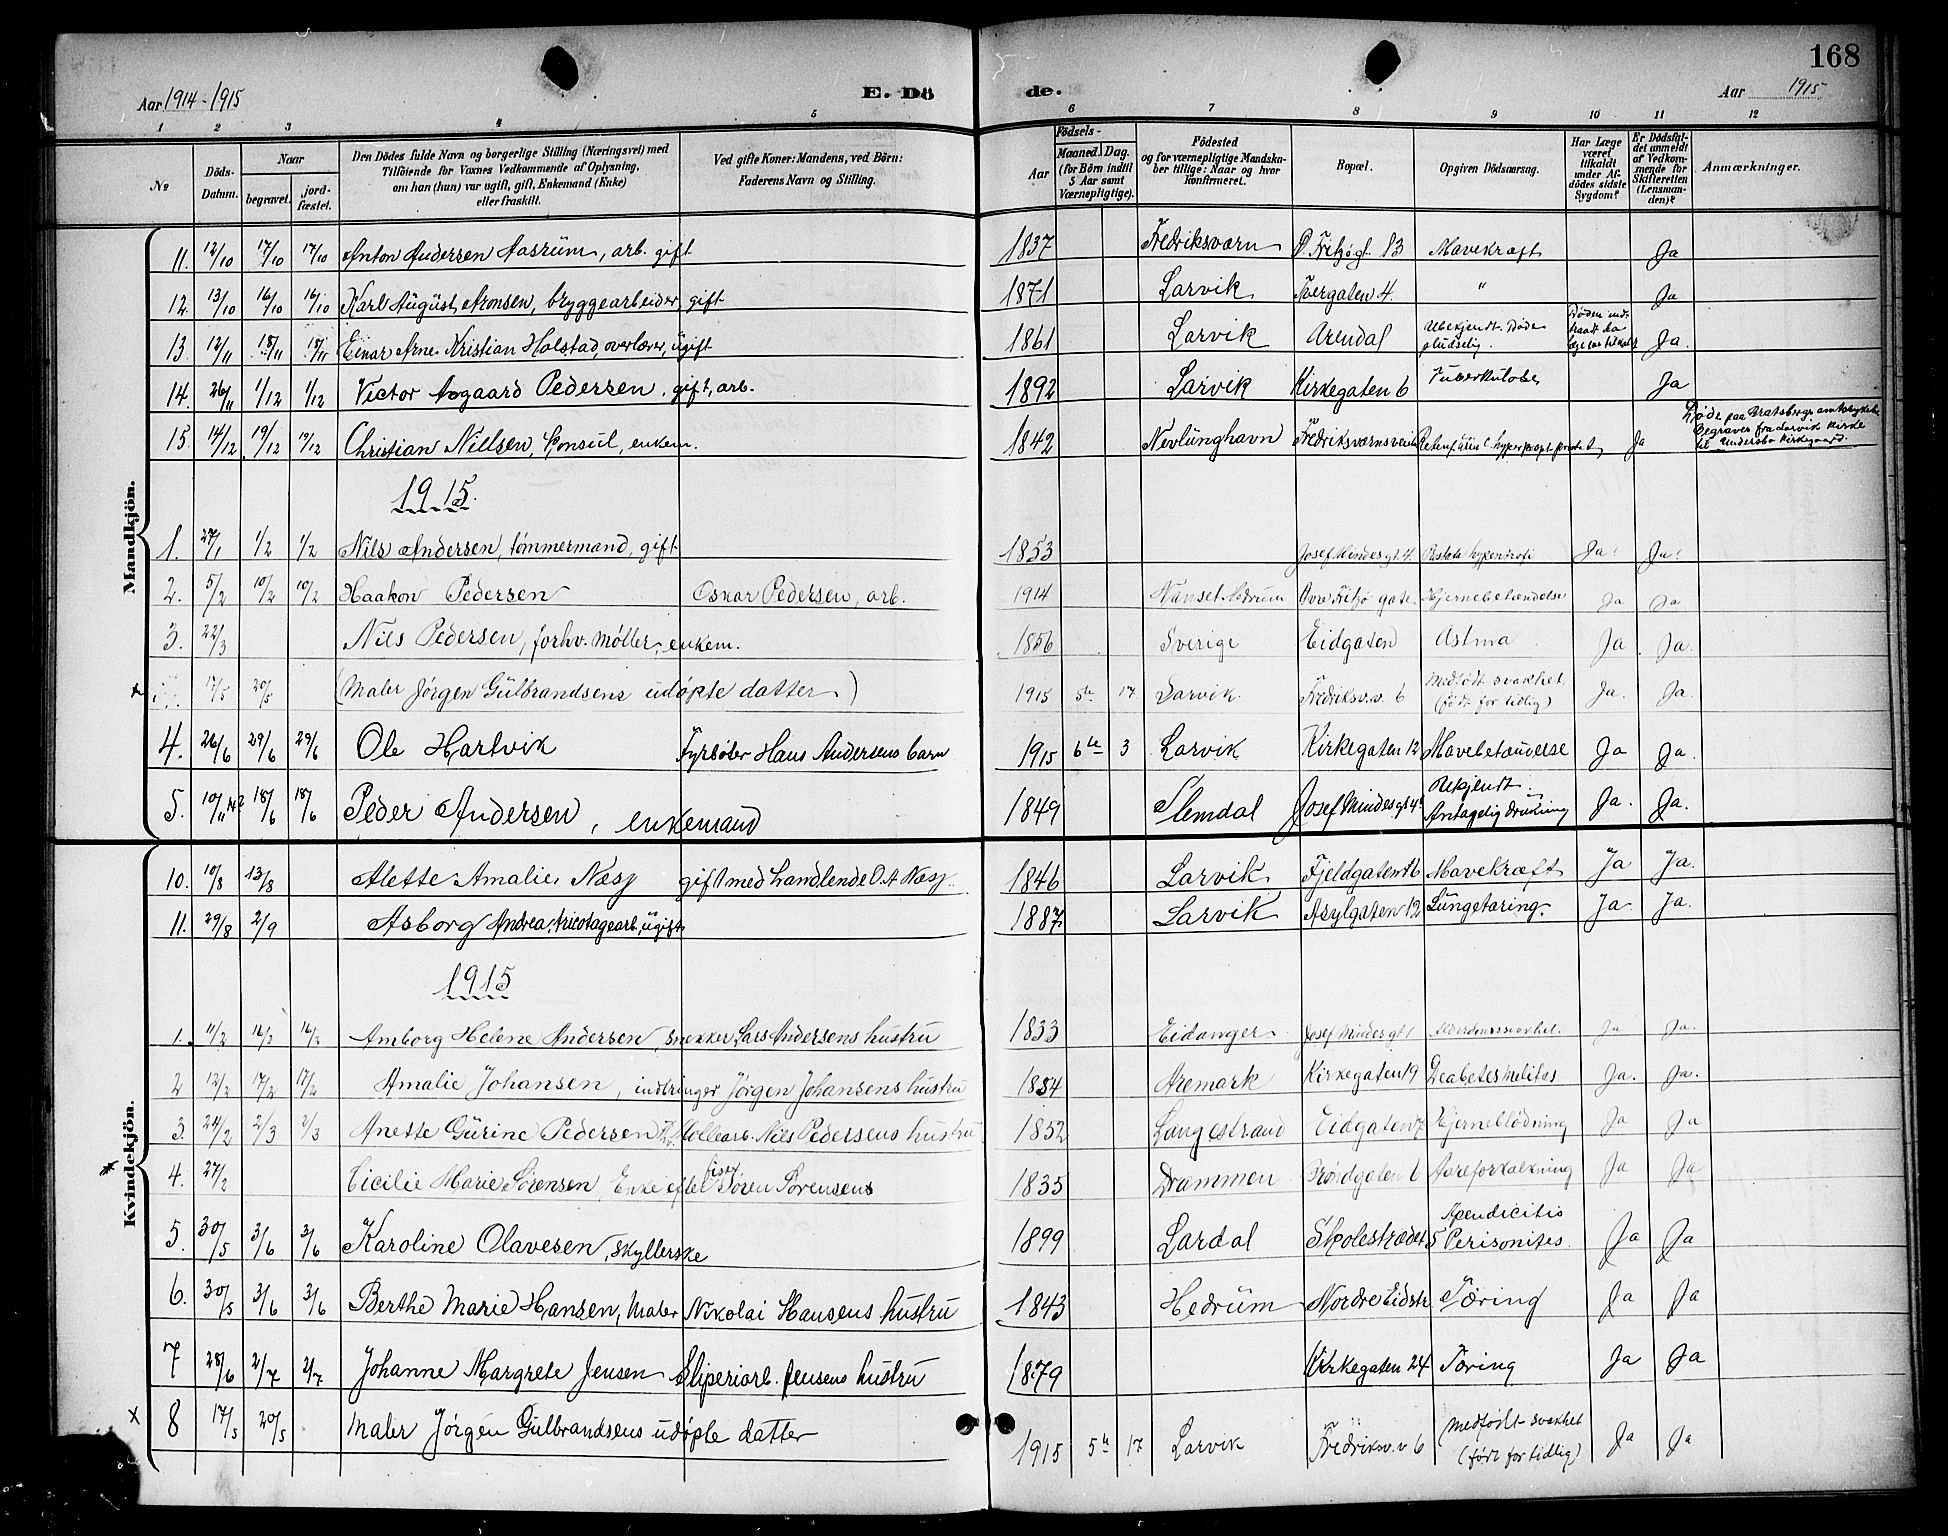 168
Aar 1914-1915 E. Dö de. Aar 1915
1 2 3 4 5 6 7 8 9 10 11 12
№ Döds-Datum. Naar begravet. jord-fæstet. Den Dödes fulde Navn og borgerlige Stilling (Næringsvei) med Tilföiende for Voxnes Vedkommende af Oplysning, om han (hun) var ugift, gift, Enkemand (Enke) eller fraskilt. Ved gifte Koner: Mandens, ved Börn: Faderens Navn og Stilling. Födsels- Aar Maaned. Dag. (for Börn indtil 5 Aar samt Værnepligtige). Födested og for værnepligtige Mandskaber tillige: Naar og hvor konfirmeret. Bopæl. Opgiven Dödsaarsag. Har Læge været tilkaldt under Afdödes sidste Sygdom? Er Dödsfaldet anmeldt af Vedkommende for Skifteretten (Lensmanden)? Anmærkninger.
Mandkjön.
11. 12/10 17/10 17/10 Anton Andersen Aasrüm, arb. gift 1837 Fredriksværn Ø. Fritzøgt. 13 Mavekræft Ja
12. 13/10 16/10 16/10 Karl August Aronsen, bryggearbeider, gift 1871 Larvik Tvergaten 4. " Ja
13. 12/11 18/11 18/11 Einar Arne Kristian Holstad, overlærer, ugift 1861 Larvik Arendal Ubekjendt. Døde pludselig. Døden indtraadt da læge var tilkaldt Ja.
14. 26/11 1/12 1/12 Victor Asgaard Pedersen, gift, arb. 1892 Larvik Kirkegaten 6 Tuberkulose Ja
15. 14/12 19/12 19/12 Christian Nielsen, Konsul, enkem. 1842 Nevlünghavn Fredriksværnsveien Ja Døde paa Bratsberg amtssykeh. Begraver fra Larvik Kirke til Undersbo Kirkegaard.
1915.
1. 27/1 1/2 1/2 Nils Andersen, tømmermand, gift 1853 Josef Mindes gt. 4. Prostata hypertrofi Ja. Ja.
2. 5/2 10/2 10/2 Haakon Pedersen Oskar Pedersen, arb. 1914 Nanset Hedrum Øvre Fritzø gate Hjernebetændelse Ja Ja
3. 22/3 Nils Pedersen, forhv. Møller, enkem. 1856 Sverige Eidgaten Astma Ja Ja.
17/5 20/5 (Maler Jørgen Gülbrandsens udøpte datter) 1915 5te 17 Larvik. Fredriksv.v. 6 Medfødt svakhet. (født for tidlig) Ja. Ja.
4. 26/6 29/6 29/6 Ole Hartvik Fyrbøter Hans Andersens barn 1915 6te 3 Larvik Kirkegaten 12 Mavebetændelse Ja Ja.
5. 10/11 14? 18/6 18/6 Peder Andersen, enkemand 1849 Slemdal Josef Mindes gt 4 Ukjendt. Antagelig drukning Ja. Ja.
Kvindekjön.
10. 10/8 13/8 Alette Amalie Næsj gift med handlende O. A Næsj.. 1846 Larvik. Fjeldgaten 16 Mavekræft Ja Ja.
11. 29/8 2/9 Asborg Andrea, tricotagearb, ugift 1887 Larvik Asylgaten 12 Lungetæring. Ja. Ja.
1915
1. 11/2 16/2 16/2 Amborg Helene Andersen, snekker Lars Andersens hustru 1833 Eidanger Josef Mindes gt 1 Alderdomssvakhet. Ja Ja.
2 12/2 17/2 17/2 Amalie Johansen, indbringer Jørgen Johansens hustru 1854 Aremark Kirkegaten 19 Deabetes melitus Ja. Ja.
3. 24/2 2/3 2/3 Anette Gürine Pedersen Møllearb. Nils Pedersens hustru 1852 Langestrand Eidgaten Hjerneblødning Ja Ja
4. 27/2 Cicilie Marie Sørensen, Enke efter fisker Søren Sørensens 1835 Drammen Brøndgaten 6 Aareforkalkning Ja Ja
5. 30/5 3/6 3/6 Karoline Olavesen, skyllerske 1899 Lardal Skolestrædet 5 Apendicitis Perisonites. Ja Ja
6. 30/5 3/6 3/6 Berthe Marie Hansen, Maler Nikolai Hansens hustru 1843 Hedrüm Nordre Eidstr. Tæring Ja Ja
7 28/6 2/7 2/7 Johanne Margrete Jensen Sliperiarb. Jensens hustru 1879 Kirkegaten 24 Tæring Ja Ja
x 8 17/5 20/5 Maler Jørgen Gulbrandsens udøpte datter 1915 5te 17 Larvik Fredriksv. v 6 Medfødt svakhet (født for tidlig) Ja Ja